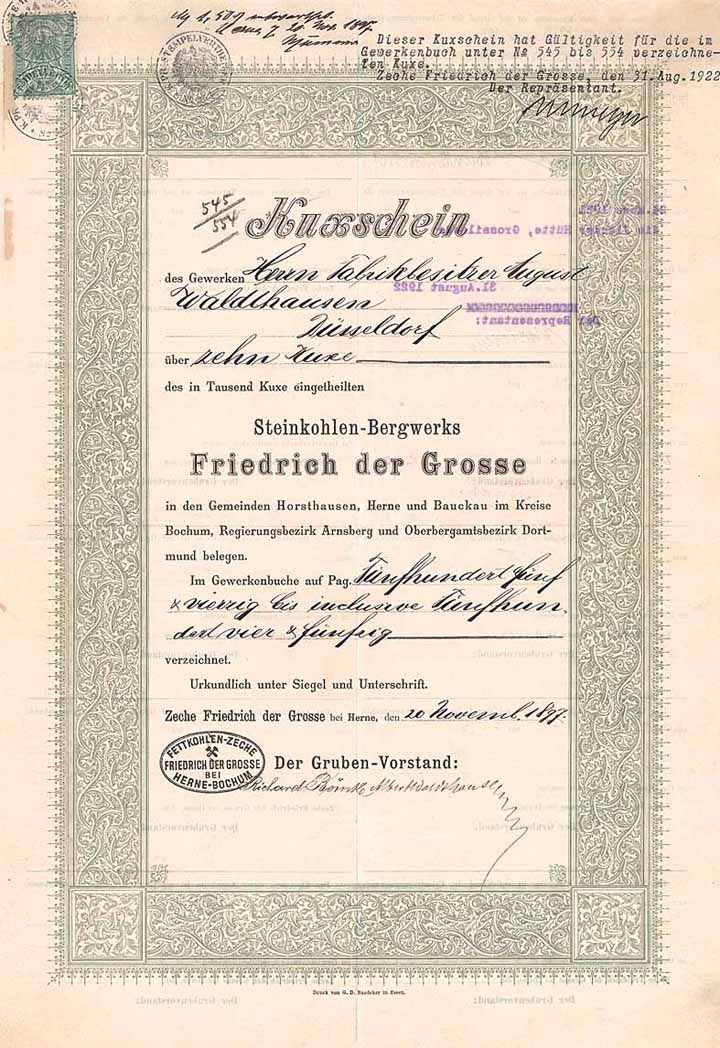 Dieser Kuxschein hat Gültigkeit für die im
Gewerkenbuch unter No 545 bis 554 verzeichne-
ten Kuxe.
Zeche Friedrich der Grosse, den 31. Aug. 1922
Der Repräsentant.
545
554
Kuxschein
des Gewerken Herrn Fabrikbesitzer August
Waldthausen
Düsseldorf
31. August 1922
Der Repräsentant:
über zehn Kuxe
des in Tausend Kuxe eingetheilten
Steinkohlen-Bergwerks
Friedrich der Grosse
in den Gemeinden Horsthausen, Herne und Bauckau im Kreise
Bochum, Regierungsbezirk Arnsberg und Oberbergamtsbezirk Dort-
mund belegen.
Im Gewerkenbuche auf Pag. Fünfhundert fünf
& vierzig bis inclusive Fünfhun
dert vier & fünfzig
verzeichnet.
Urkundlich unter Siegel und Unterschrift.
Zeche Friedrich der Grosse bei Herne, den 20 Novemb. 1897.
FETTKOHLEN-ZECHE
FRIEDRICH DER GROSSE
BEI
HERNE-BOCHUM
Der Gruben-Vorstand:
Richard Albert Waldthausen
Druck von G. D. Baedeker in Essen.